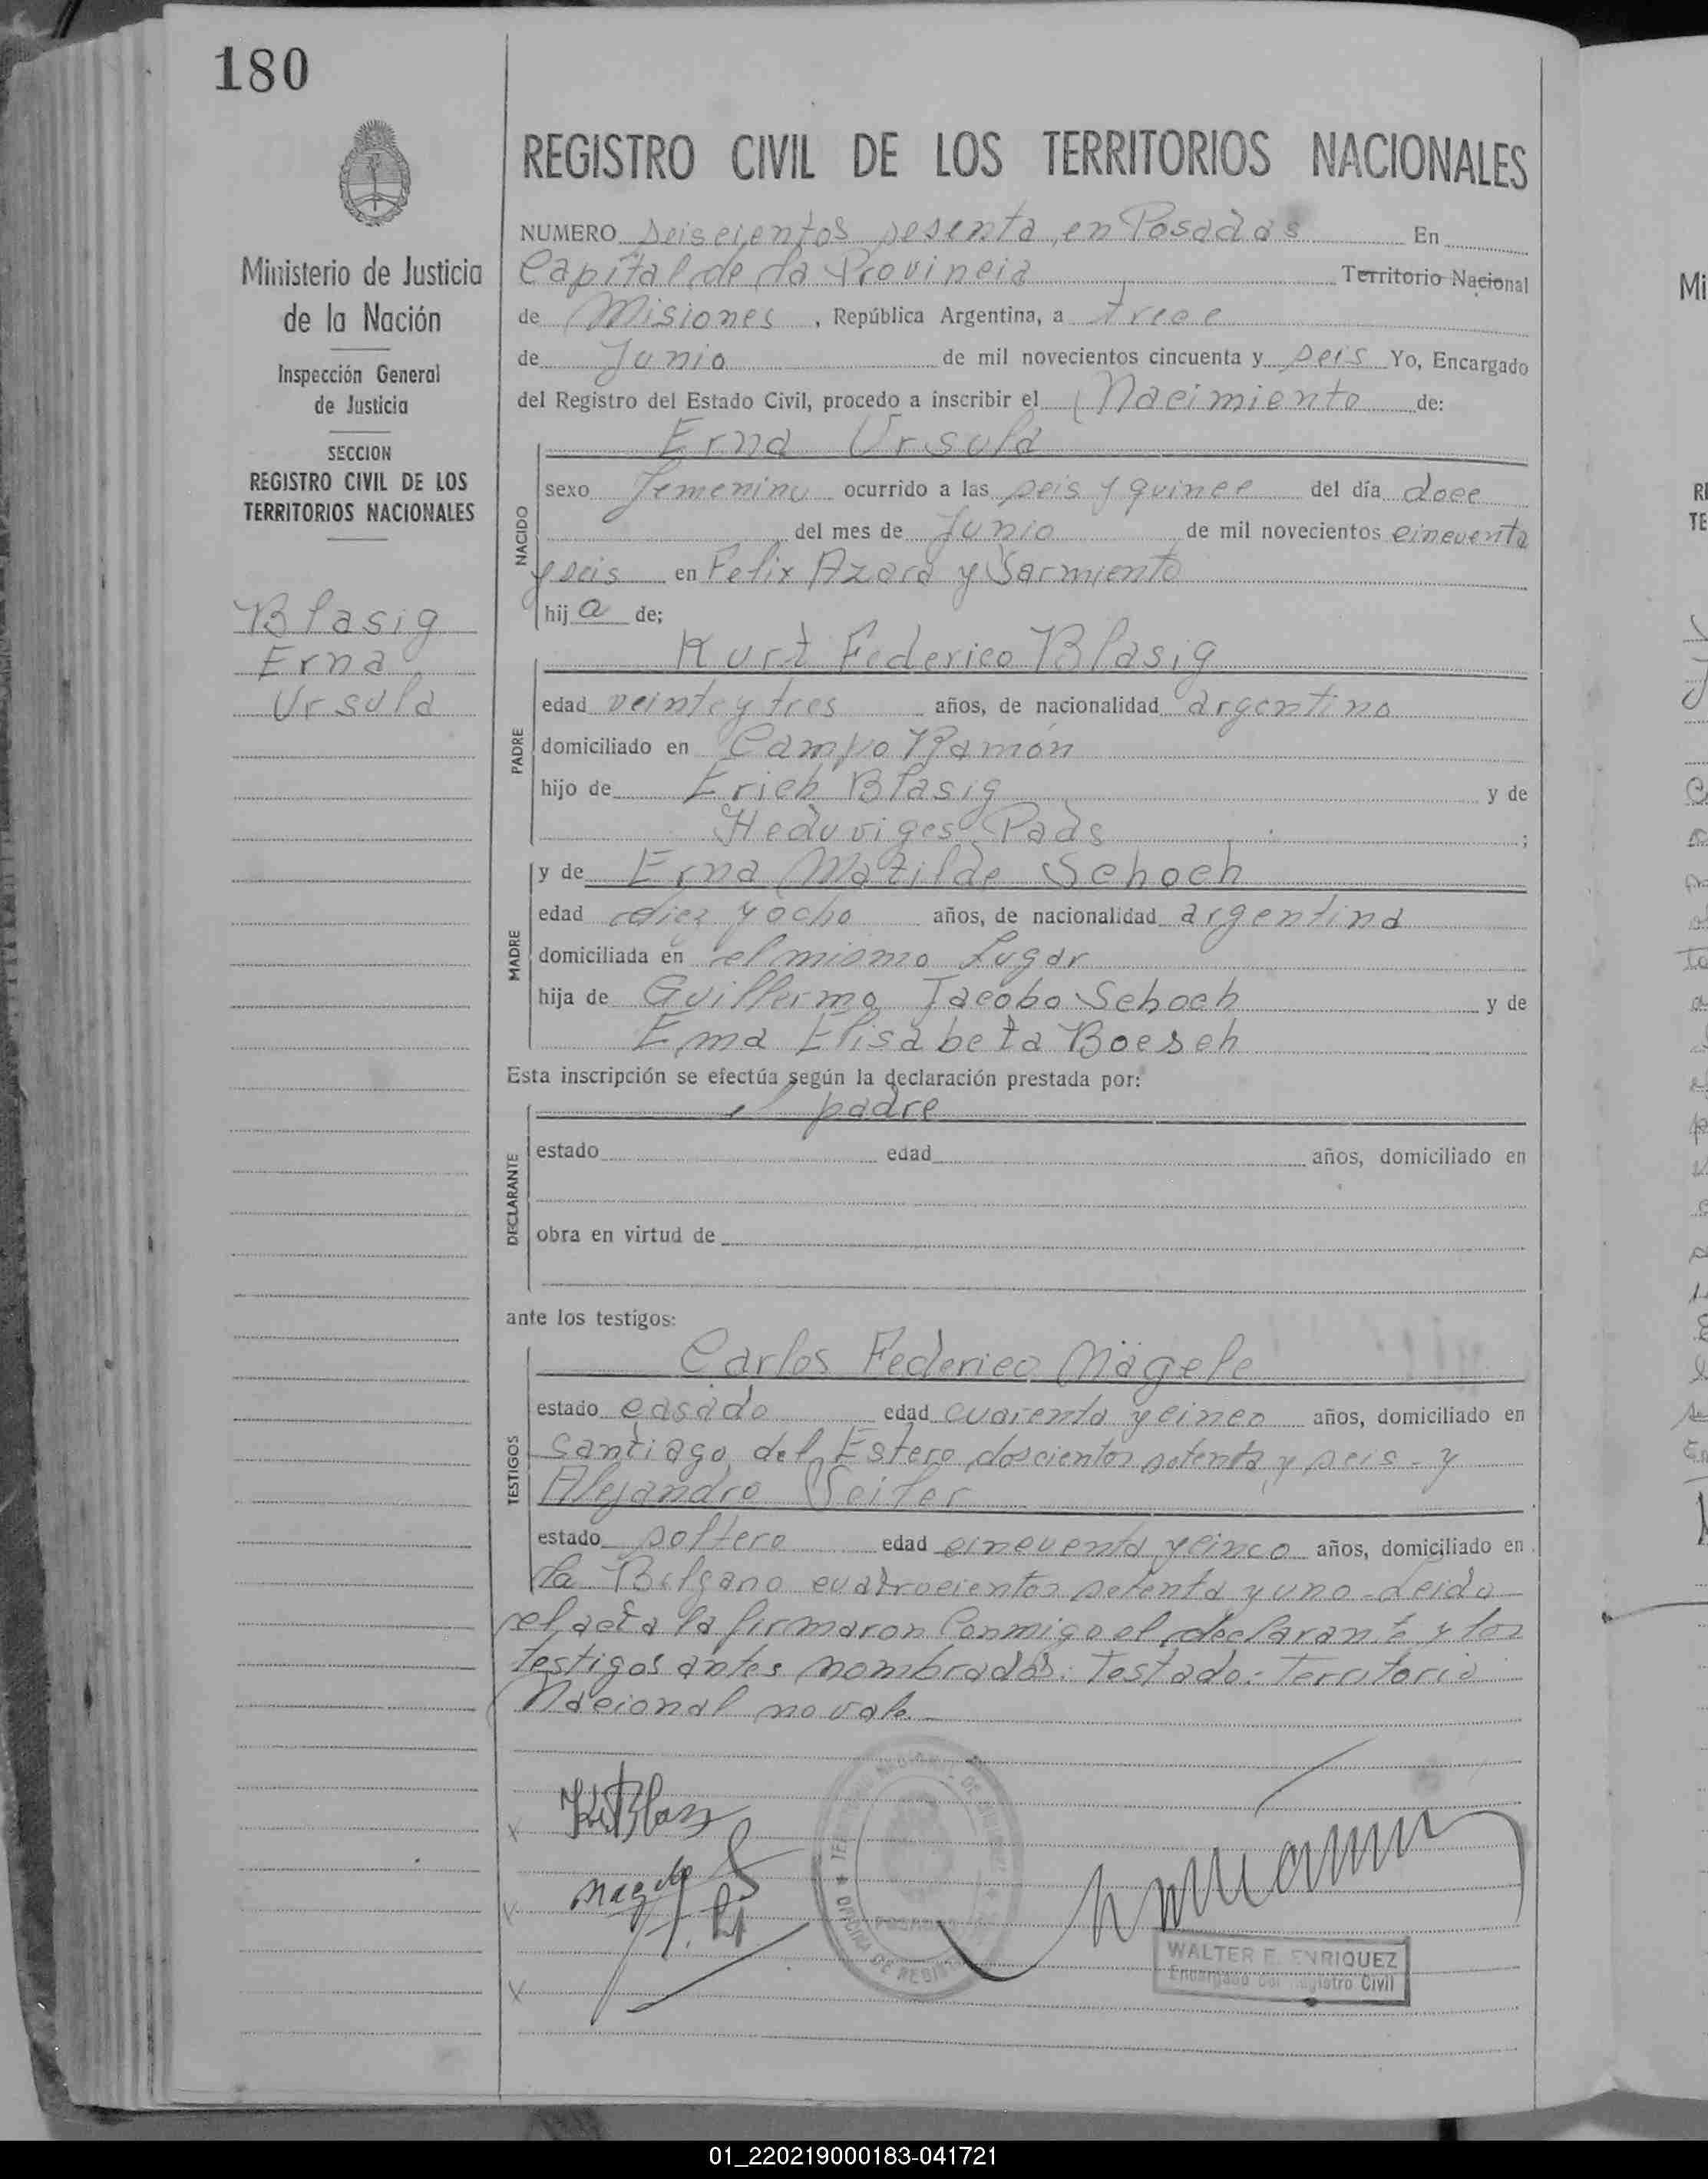 180
REGISTRO CIVIL DE LOS TERRITORIOS NACIONALES
Ministerio de Justicia
de la Nación
Inspección General
de Justicia
SECCION
REGISTRO CIVIL DE LOS
TERRITORIOS NACIONALES
Blasig
Erna
Ursula
NUMERO seiscientos sesenta, en Posadas En
Capital de la Provincia Territorio Nacional
de Misiones, República Argentina, a trece
de Junio de mil novecientos cincuenta y seis Yo, Encargado
del Registro del Estado Civil, procedo a inscribir el Nacimiento de:
Erna Ursula
NACIDO
sexo femenino ocurrido a las seis y quince del día doce
del mes de Junio de mil novecientos cincuenta
y seis en Felix Azara y Sarmiento
hij a de;
PADRE
Kurt Federico Blasig
edad veinte y tres años, de nacionalidad argentino
domiciliado en Campo Ramón
hijo de Erich Blasig y de
Heduviges Pads;
MADRE
y de Erna Matilde Schoch
edad diez y ocho años, de nacionalidad argentina
domiciliada en el mismo lugar
hija de Guillermo Jacobo Schoch y de
Ema Elisabeta Boesch
Esta inscripción se efectúa según la declaración prestada por:
DECLARANTE
el padre
estado edad años, domiciliado en
obra en virtud de
ante los testigos:
TESTIGOS
Carlos Federico Mägele
estado casado edad cuarenta y cinco años, domiciliado en
Santiago del Estero doscientos setenta y seis - y
Alejandro Seifer
estado soltero edad cincuenta y cinco años, domiciliado en
la Belgano cuatrocientos setenta y uno - Leida
el acta la firmaron conmigo el declarante y los
testigos antes nombrados. Testado: Territorio
Nacional no vale.
WALTER E. ENRIQUEZ
Encargado del Registro Civil
01_220219000183-041721